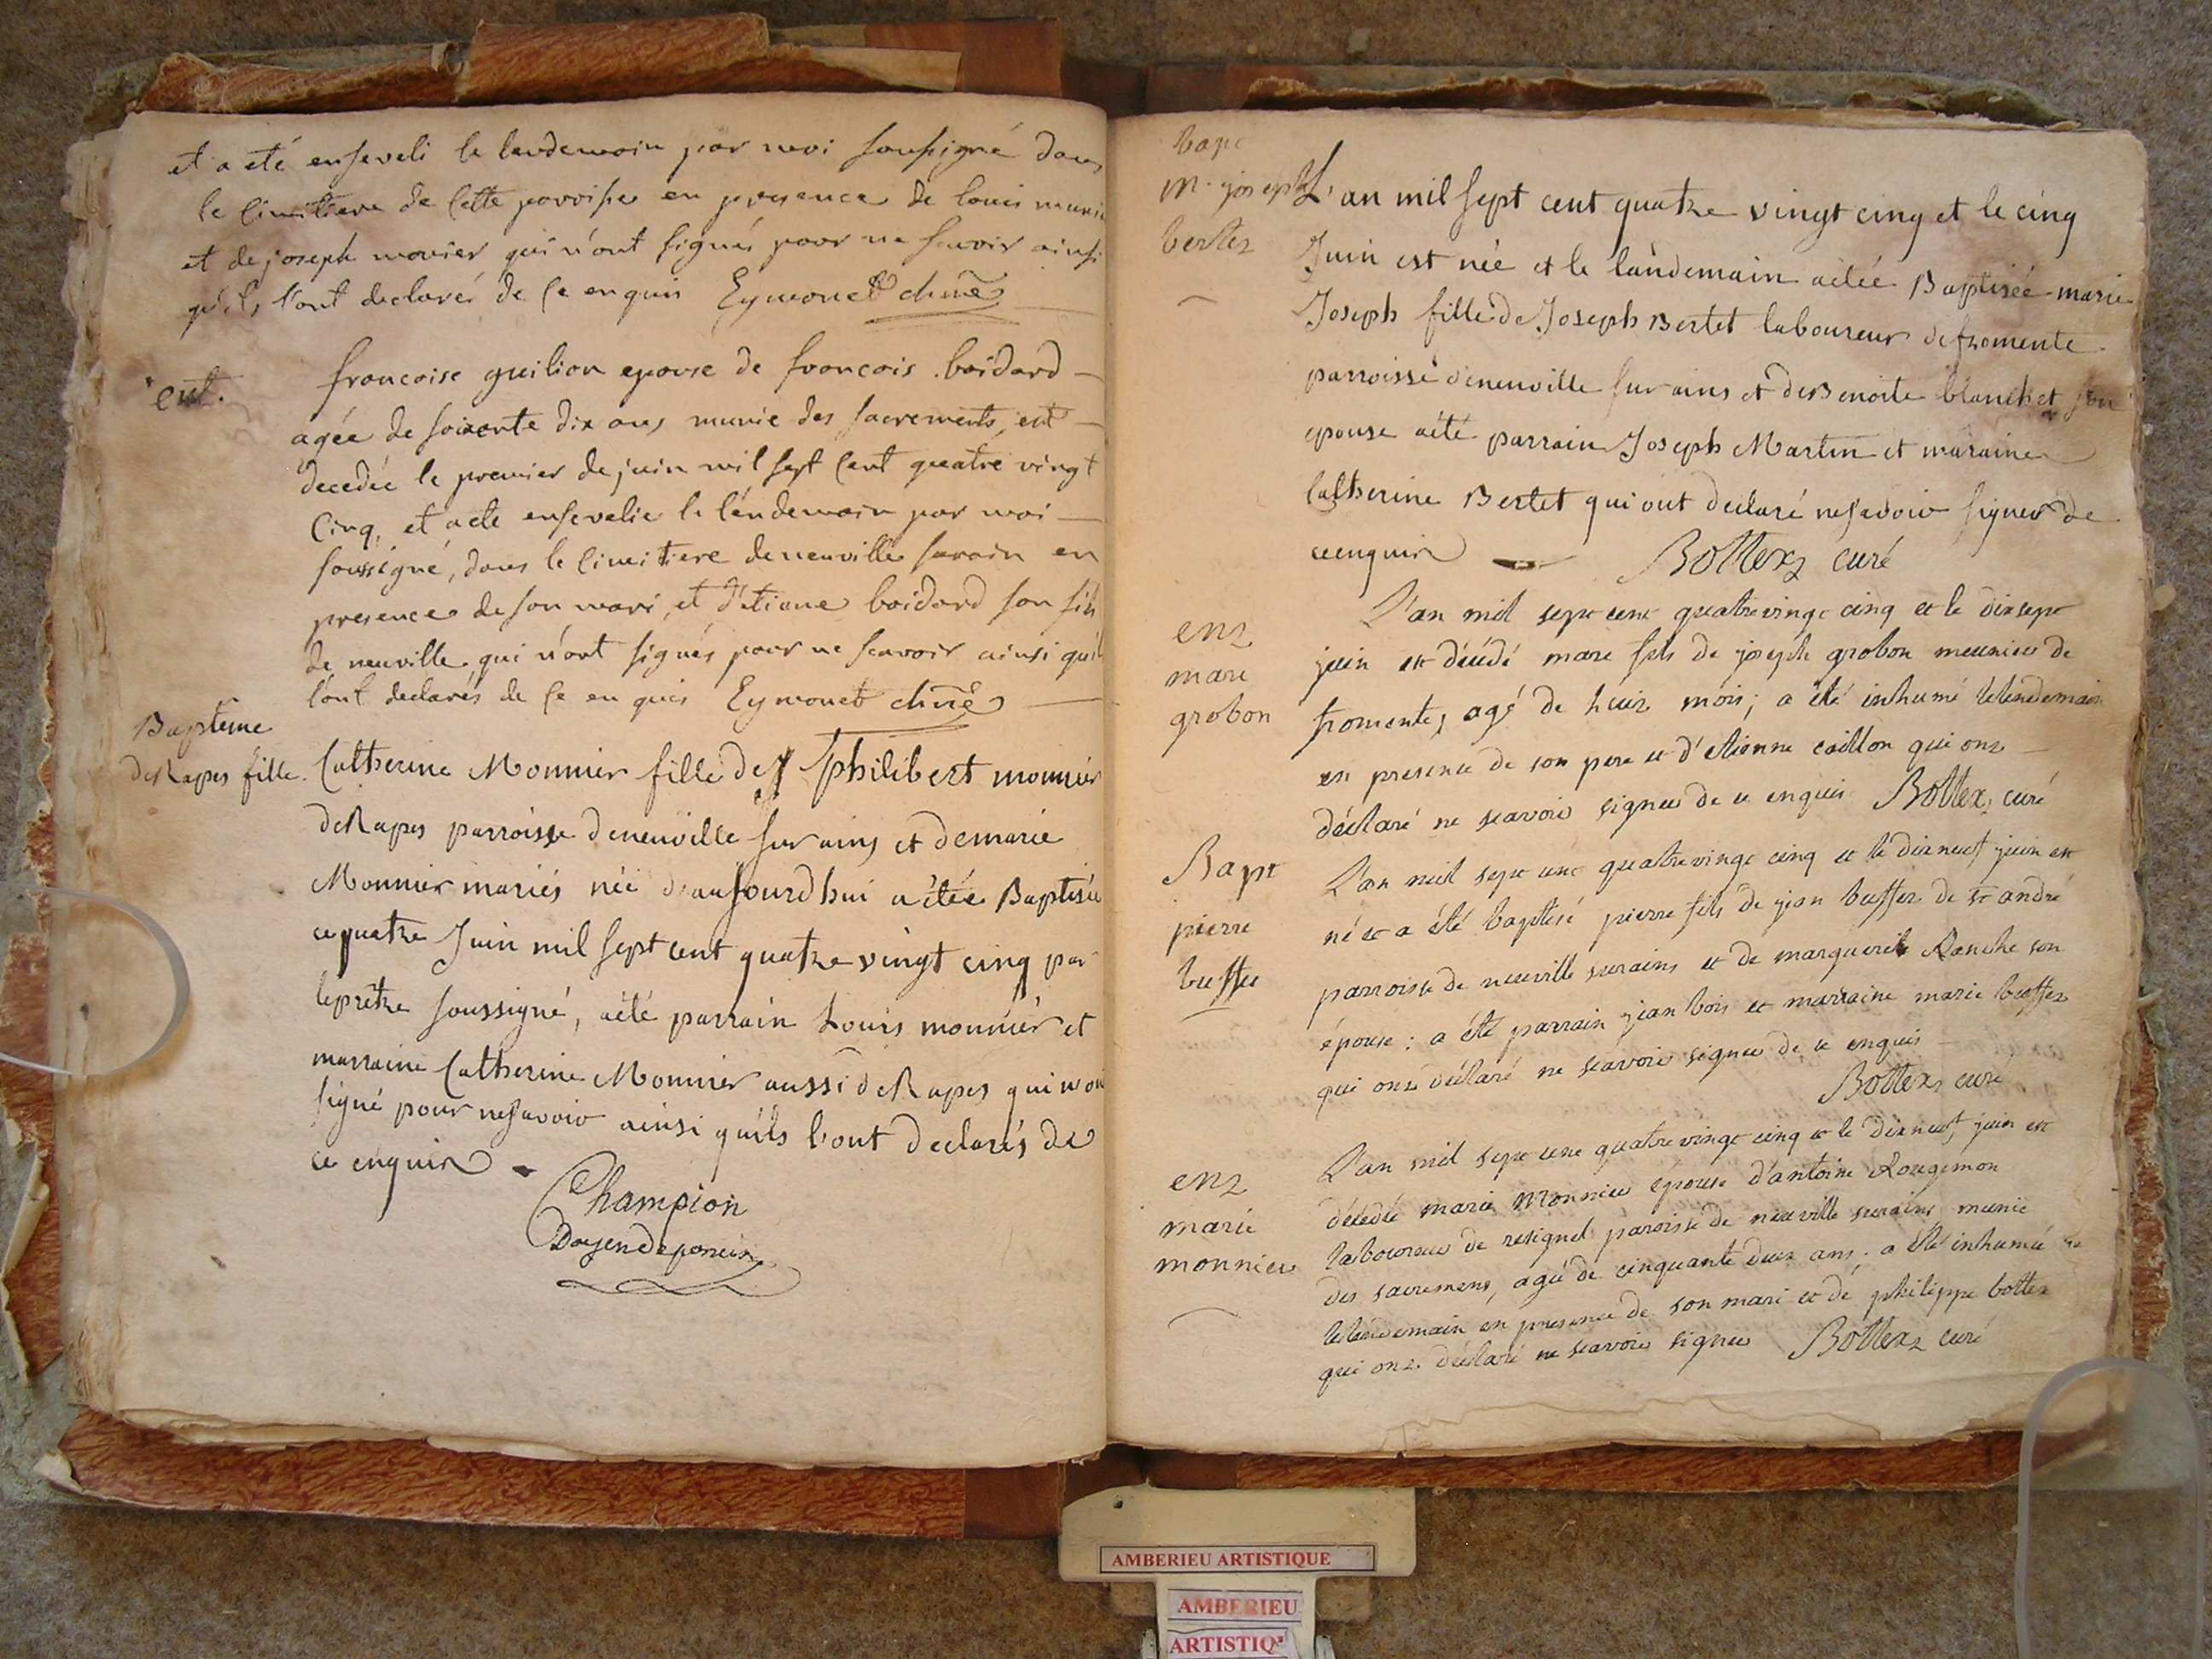 et a eté enseveli le lendemain par moi soussigné dans
le Cimitiere de Cette paroisse en presence de louis
et de joseph monier qui n'ont signés pour ne scavoir ainsi
qu'ils l'ont declarés de ce enquis Eymonet
ent.
francoise guilion epouse de francois boidard
agée de soixante dix ans munie des sacrements, est
decedée le premier de juin mil sept Cent quatre vingt
Cinq, et a ete ensevelie le lendemain par moi
soussigné, dans le Cimitiere de neuville surain en
presence de son mari, et d'Etiene boidard son fils
de neuville qui n'ont signés pour ne scavoir ainsi qu'ils
l'ont declarés de ce en quis Eymonet
Bapteme
de Rapes fille
Catherine Monnier fille de philibert monnier
de Rapes parroisse deneuville sur ains et demarie
Monnier mariés née d'aujourdhui a étée Baptisée
ce quatre Juin mil sept cent quatre vingt cinq par
leprêtre soussigné, a été parrain Louis monnier et
marraine Catherine Monnier aussi de Rapes qui n'ont
signé pour nesavoir ainsi qu'ils l'ont declarés de
ce enquis
Champion
Doyen de poncin
bapt
m. joseph
bertet
L'an mil sept cent quatre vingt cinq et le cinq
Juin est née et le landemain a étée Baptisée marie
Joseph fille de Joseph Bertet laboureur de fromente
parroisse deneuville sur ains et de Benoite blanchet son
epouse a été parrain Joseph Martin et maraine
Catherine Bertet qui ont declaré nesavoir signer de
ce enquis Bottex curé
ent
marc
grobon
L'an mil sept cent quatrevingt cinq et le dixsept
juin est décédé marc fils de joseph grobon meunier de
fromente, agé de huit mois; a été inhumé lelendemain
en presence de son pere et d'etienne caillon qui ont
déclaré ne scavoir signer de ce enquis Bottex curé
Bapt
pierre
buffet
L'an mil sept cent quatrevingt cinq et le dixneuf juin est
né et a été baptisé pierre fils de jean buffet de st andré
parroisse de neuville surains et de marguerite Ranche son
épouse : a été parrain jean bois et marraine marie buffet
qui ont déclaré ne scavoir signer de ce enquis
Bottex curé
ent
marie
monnier
L'an mil sept cent quatrevingt cinq et le dixneuf juin est
décédée marie Monnier épouse d'antoine Rougemon
laboureur de resignel paroisse de neuville surains munie
des sacremens, agée de cinquante deux ans. a été inhumée
lelendemain en presence de son mari et de philippe bottex
qui ont déclaré ne scavoir signer Bottex curé
AMBERIEU ARTISTIQUE
AMBERIEU
ARTISTIQ